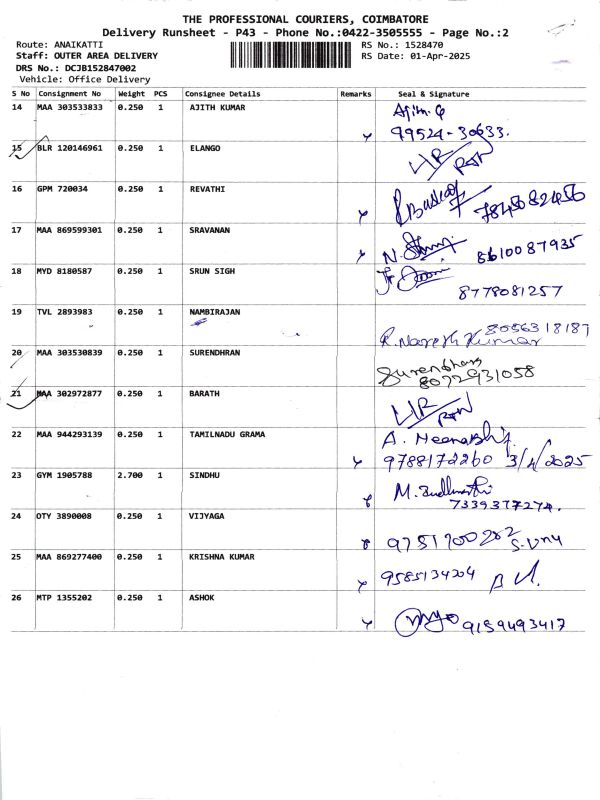 THE PROFESSIONAL COURIERS, COIMBATORE
Delivery Runsheet - P43 - Phone No.:0422-3505555 - Page No.:2
Route: ANAIKATTI
RS No.: 1528470
Staff: OUTER AREA DELIVERY
RS Date: 01-Apr-2025
DRS No.: DCJB152847002
Vehicle: Office Delivery
S No Consignment No Weight PCS Consignee Details Remarks Seal & Signature
14 MAA 303533833 0.250 1 AJITH KUMAR
99524-30633.
15 BLR 120146961 0.250 1 ELANGO
16 GPM 720034 0.250 1 REVATHI
7845082456
17 MAA 869599301 0.250 1 SRAVANAN
8610087935
18 MYD 8180587 0.250 1 SRUN SIGH
8778081257
19 TVL 2893983 0.250 1 NAMBIRAJAN
8056318187
R. Naresh Kumar
20 MAA 303530839 0.250 1 SURENDHRAN
8072931058
21 MAA 302972877 0.250 1 BARATH
22 MAA 944293139 0.250 1 TAMILNADU GRAMA
9788172260 3/4/2025
23 GYM 1905788 2.700 1 SINDHU
7339377274.
24 OTY 3890008 0.250 1 VIJYAGA
9751700202
25 MAA 869277400 0.250 1 KRISHNA KUMAR
9585134204
26 MTP 1355202 0.250 1 ASHOK
9159493417